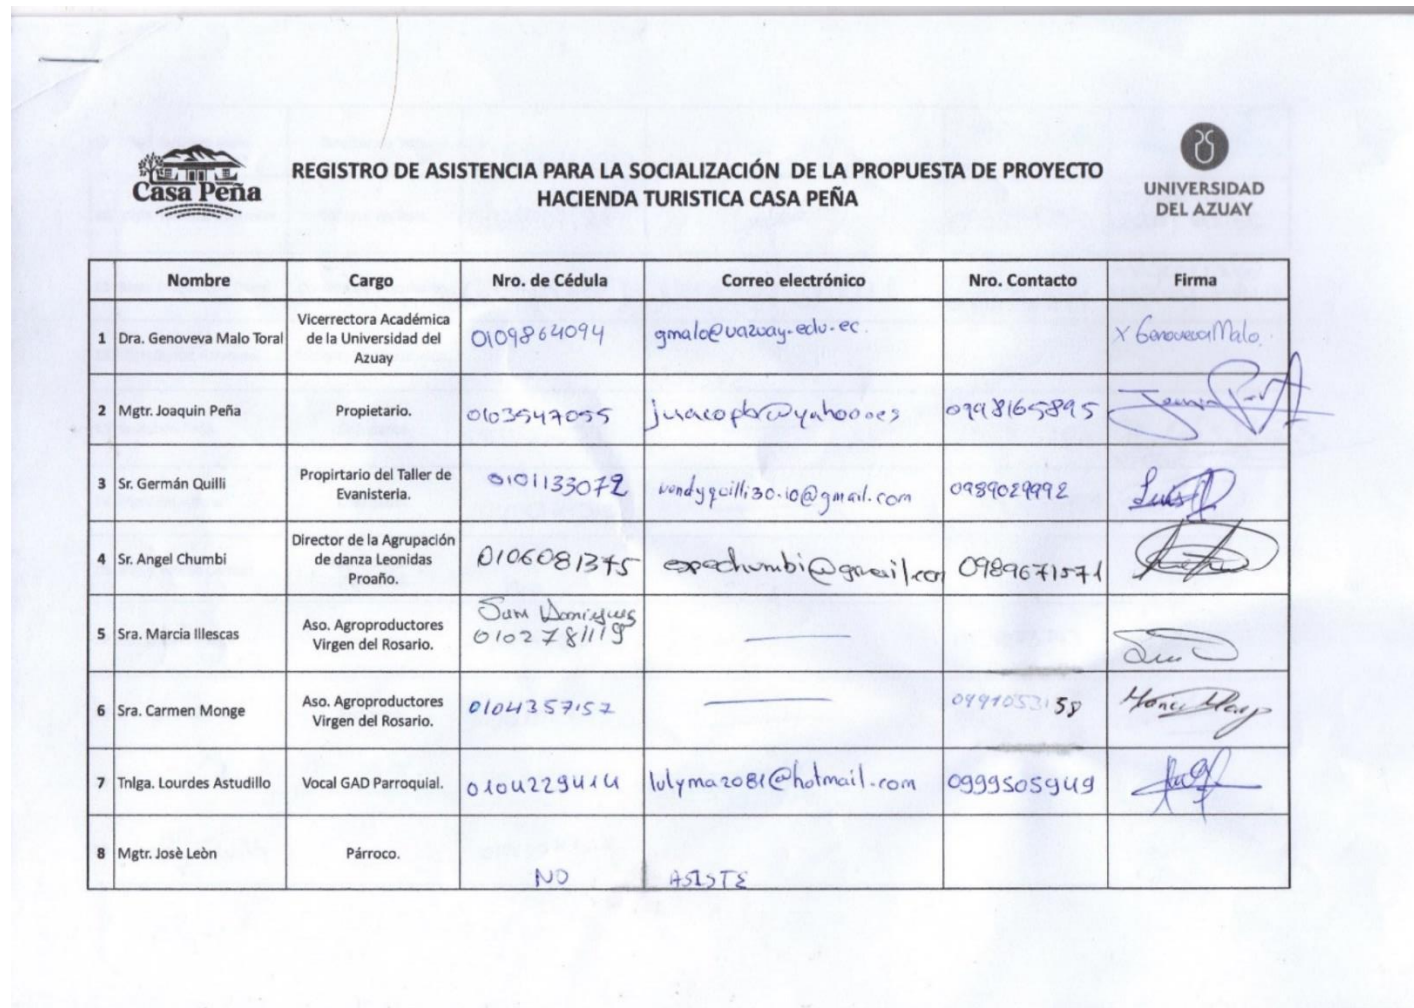 Casa Peña
REGISTRO DE ASISTENCIA PARA LA SOCIALIZACIÓN DE LA PROPUESTA DE PROYECTO
HACIENDA TURISTICA CASA PEÑA
UNIVERSIDAD
DEL AZUAY
Nombre Cargo Nro. de Cédula Correo electrónico Nro. Contacto Firma
1 Dra. Genoveva Malo Toral
Vicerrectora Académica
de la Universidad del
Azuay
0109864094 gmalo@uazuay.edu.ec. X Genoveva Malo.
2 Mgtr. Joaquin Peña Propietario. 0103547055 0998165895
3 Sr. Germán Quilli
Propirtario del Taller de
Evanisteria.
0101133072 wendyquilli30.10@gmail.com 0989029992
4 Sr. Angel Chumbi
Director de la Agrupación
de danza Leonidas
Proaño.
0106081375 0989671571
5 Sra. Marcia Illescas
Aso. Agroproductores
Virgen del Rosario.
0102781119
6 Sra. Carmen Monge
Aso. Agroproductores
Virgen del Rosario.
0104357157
7 Tnlga. Lourdes Astudillo Vocal GAD Parroquial. 0104229414 lulyma2081@hotmail.com 0999505949
8 Mgtr. Josè Leòn Párroco.
NO ASISTE